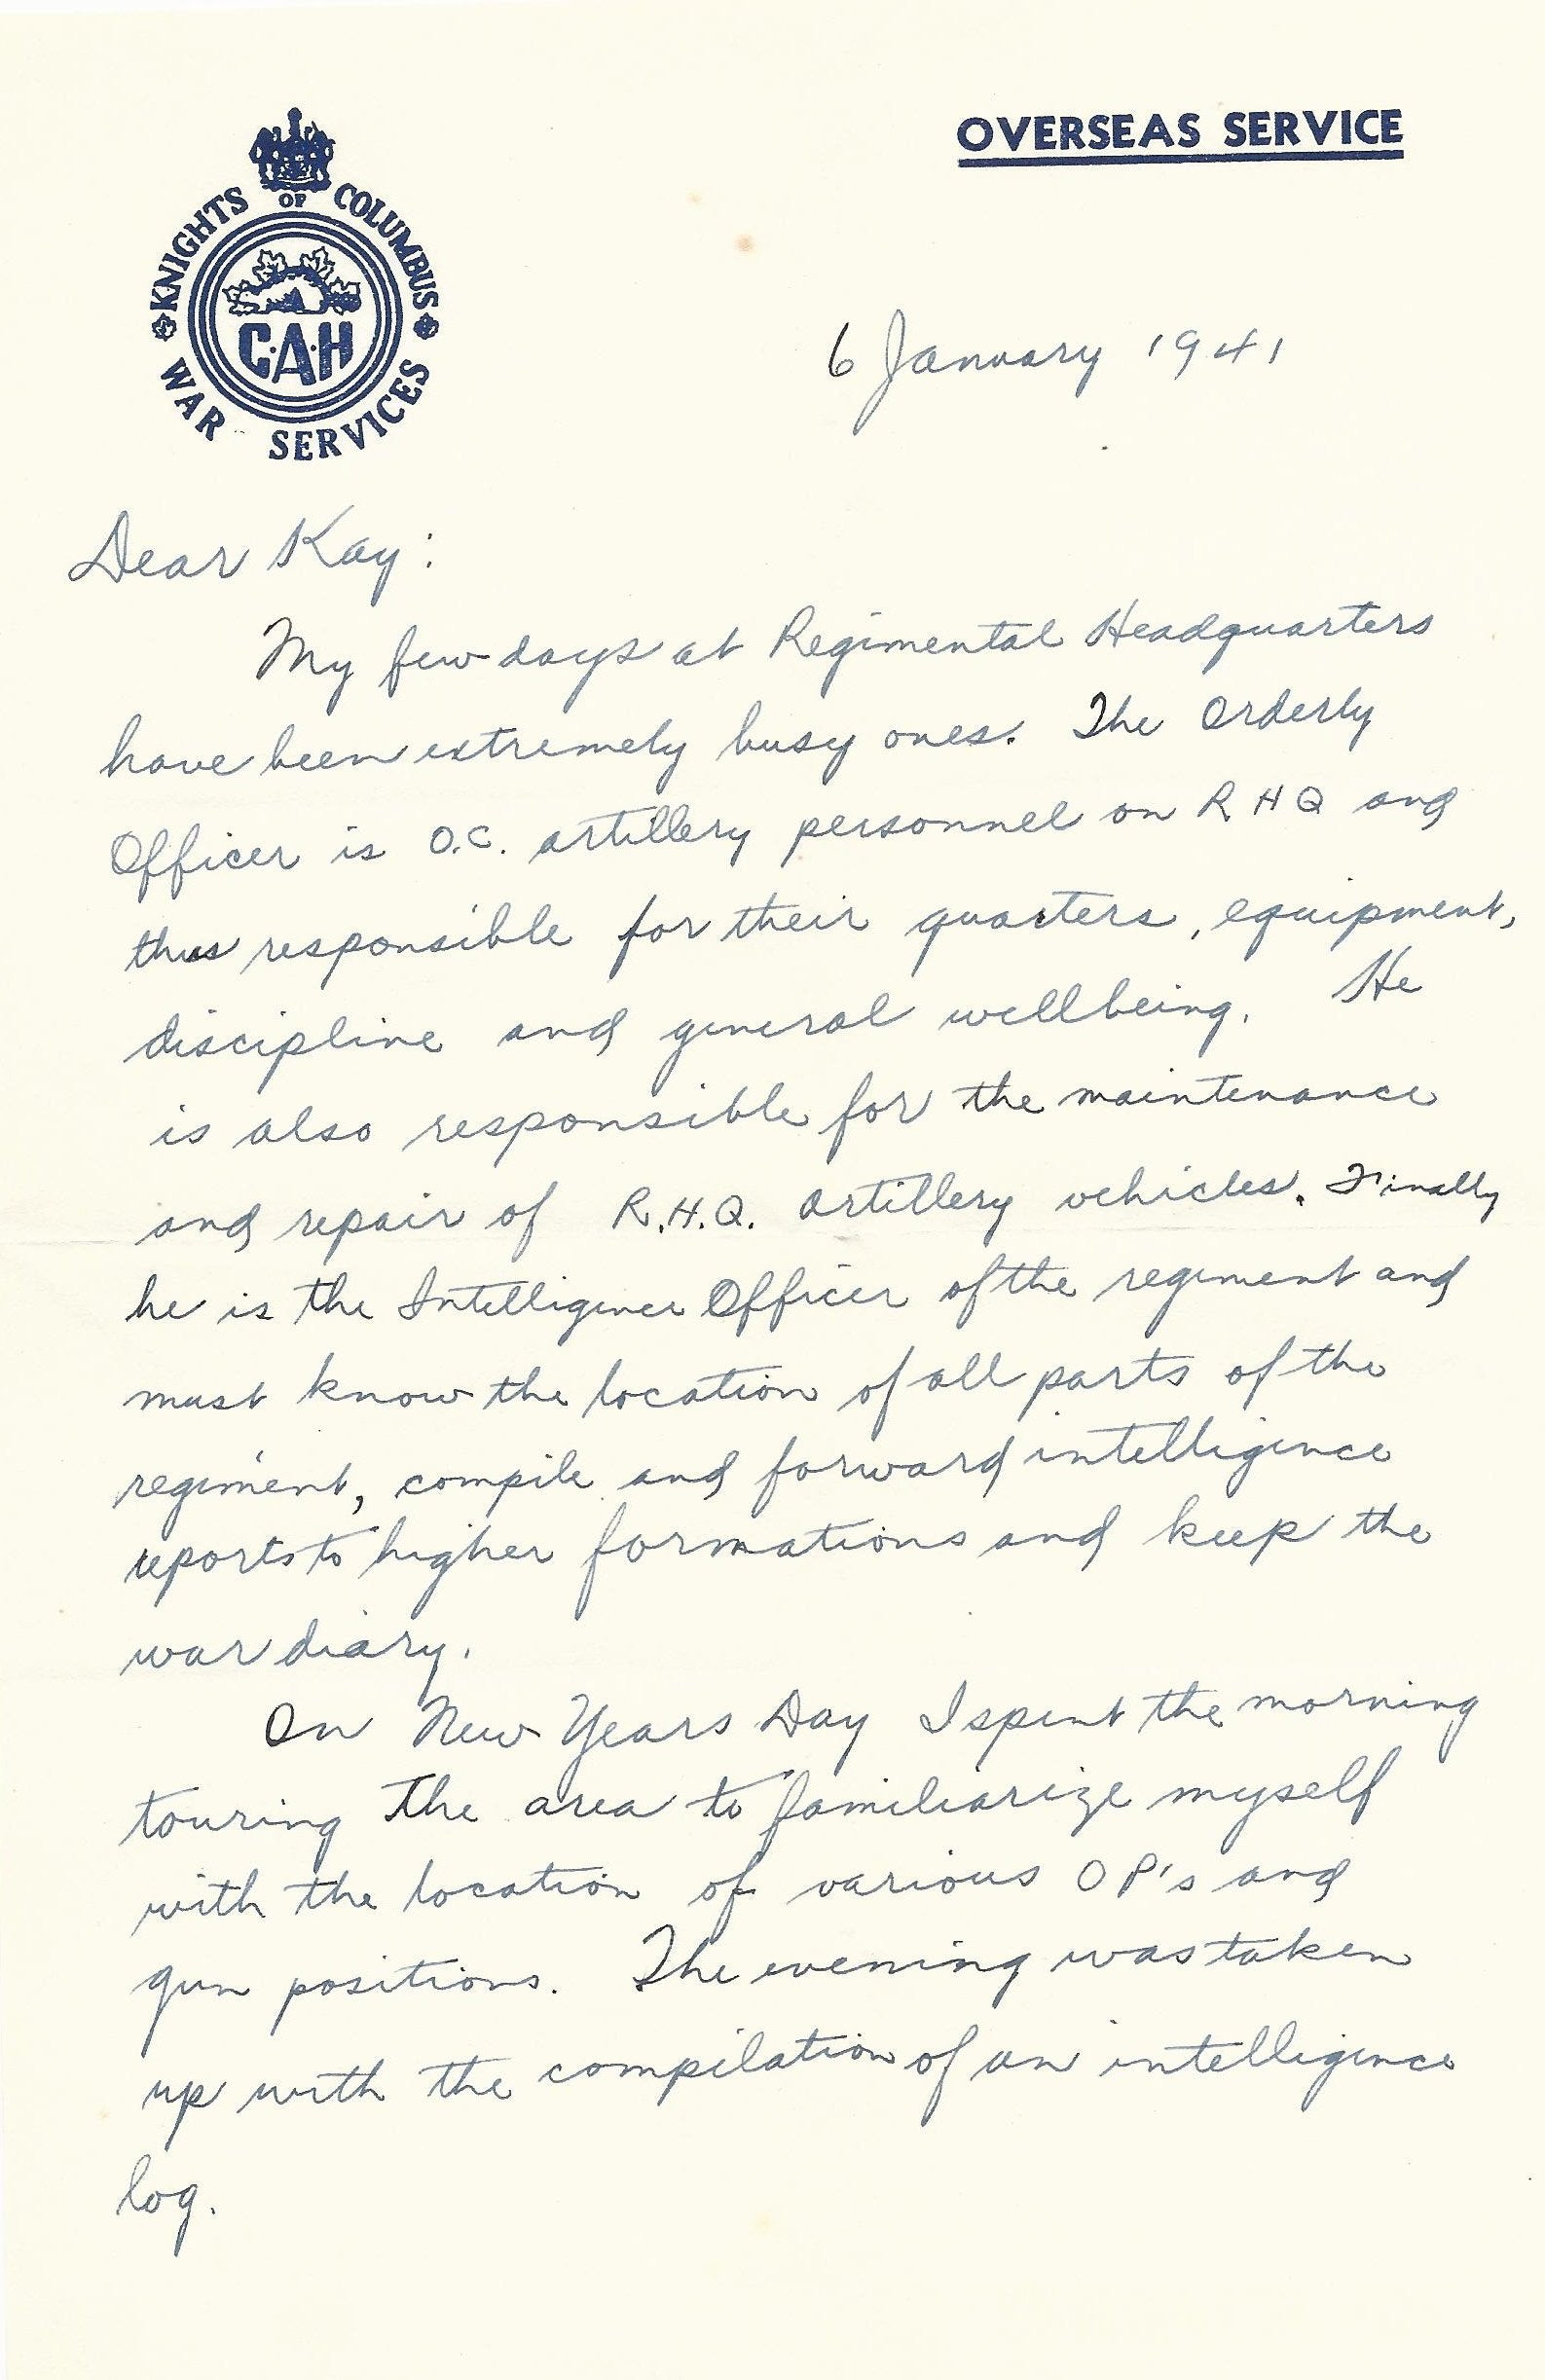 OVERSEAS SERVICE
KNIGHTS OF COLUMBUS
C·A·H
WAR SERVICES
6 January 1941
Dear Kay:
My few days at Regimental Headquarters
have been extremely busy ones. The Orderly
Officer is O.C. artillery personnel on R H Q and
thus responsible for their quarters, equipment,
discipline and general wellbeing. He
is also responsible for the maintenance
and repair of R.H.Q. artillery vehicles. Finally
he is the Intelligence Officer of the regiment and
must know the location of all parts of the
regiment, compile and forward intelligence
reports to higher formations and keep the
war diary.
On New Years Day I spent the morning
touring the area to familiarize myself
with the location of various OP's and
gun positions. The evening was taken
up with the compilation of an intelligence
log.